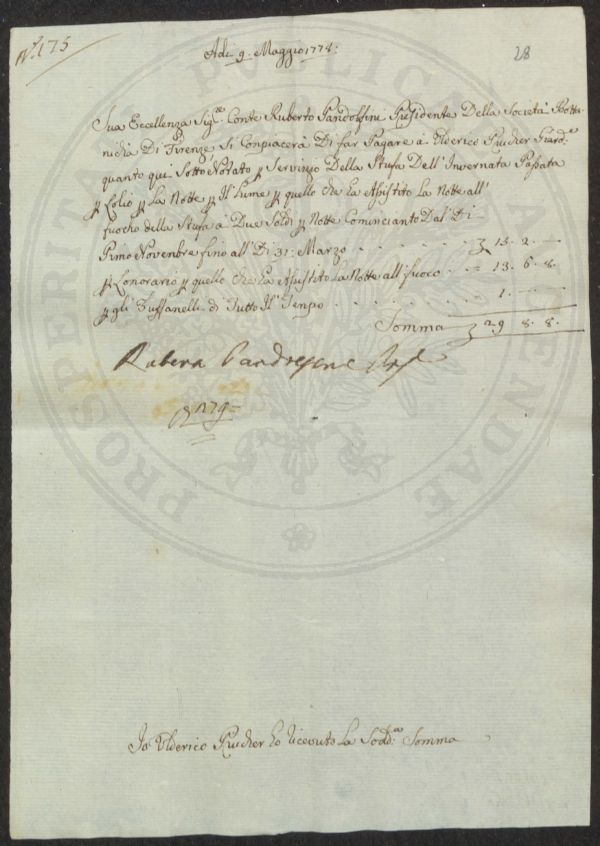 N.º 175
Adi 9. Maggio 1778:
28
Sua Eccellenza Sig.re Conte Ruberto Pandolfini Presidente Della Società Botta-
nicha Di Firenze Si Conpiacerà Di far Pagare à Ulderico Prucher Giard.e
quanto qui Sotto Notato p Servizio Della Stufa Dell' Invernata Passata
p Lolio p La Notte p Il Lume p quello che La Assistito La Notte all'
fuocho della Stufa à Due Soldi p Notte Cominciando Dal' Di
Primo Novenbre fino all' Di 31: Marzo 15. 2. —
p Lonorario p quello che La Assistito La Notte all' fuoco 13. 6. 8.
p gli Zuffanelli di Tutto Il' Tenpo 1. —
Somma 29 8. 8.
Ruberto Pandolfini
Io Ulderico Prucher ho Ricevuto La Sodd.a Somma
PROSPERITATI PVBLICAE AVGENDAE